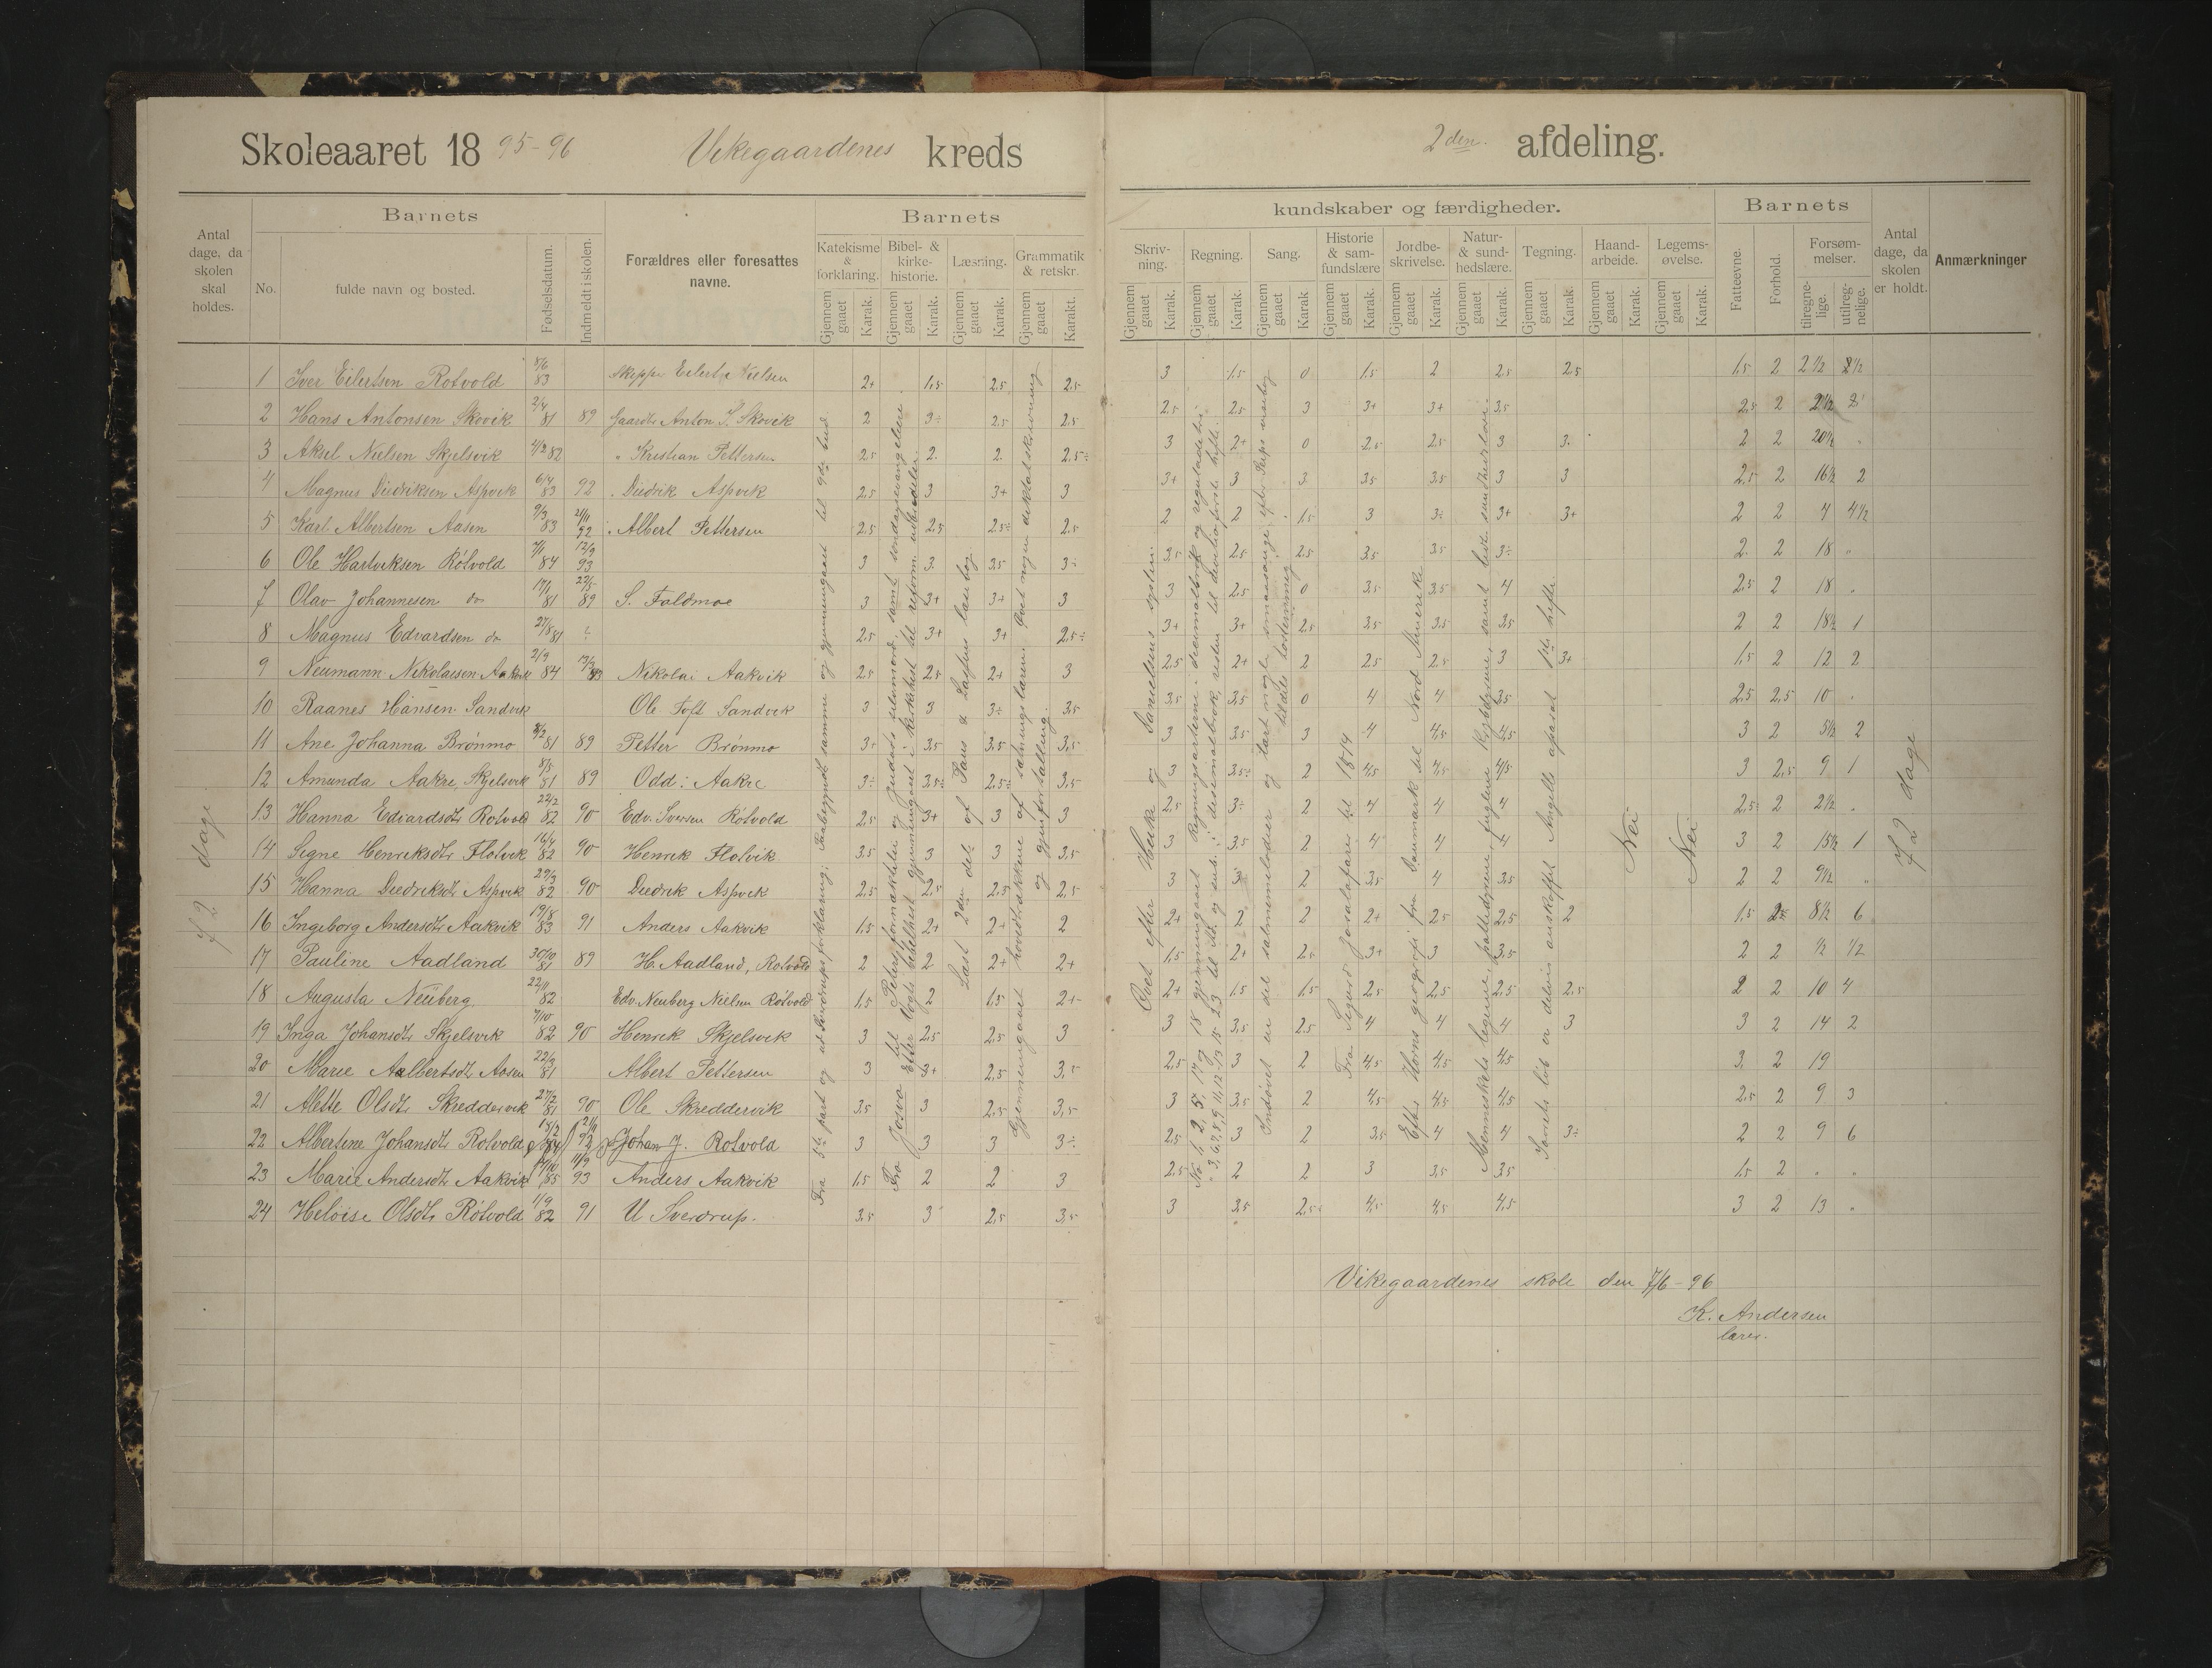 Skoleaaret 1895-96 Vikegaardenes kreds
2den afdeling.
Antal dage, da skolen skal holdes.
Barnets
No.
fulde navn og bosted.
Fødselsdatum.
Indmeldt i skolen.
Forældres eller foresattes navne.
Barnets
Katekisme & forklaring.
Bibel- & kirke-historie.
Læsning.
Grammatik & retskr.
Gjennem gaaet Karak. Gjennem gaaet Karak. Gjennem gaaet Karak. Gjennem gaaet Karakt.
kundskaber og færdigheder.
Skriv-ning.
Regning.
Sang.
Historie & sam-fundslære
Jordbe-skrivelse.
Natur- & sund-hedslære.
Tegning.
Haand-arbeide.
Legems-øvelse.
Gjennem gaaet Karak. Gjennem gaaet Karak. Gjennem gaaet Karak Gjennem gaaet Karak. Gjennem gaaet Karak. Gjennem gaaet Karak. Gjennem gaaet Karak. Gjennem gaaet Karak. Gjennem gaaet Karak.
Barnets
Fatteevne.
Forhold.
Forsøm-melser.
tilregne-lige.
utilreg-nelige.
Antal dage, da skolen er holdt.
Anmærkninger
1 Iver Eilertsen Rotvold 8/6 83 Skipper Eilert Nielsen 2+ 1,5 2,5 2,5 3 1,5 0 1,5 2 2,5 2,5 1,5 2 2 1/2
2 Hans Antonsen Skovik 2/4 81 89 Gaardb. Anton S. Skovik 2 3÷ 2,5 2,5 2,5 2,5 3 3+ 3+ 3,5 2,5 2
3 Aksel Nielsen Skjelsvik 4/2 82 " Kristian Pettersen 2,5 2 2 2,5÷ 3 2+ 0 2,5 2,5 3 3 2 2 20 1/2 "
4 Magnus Diedriksen Aspvik 6/4 83 92 Diedrik Aspvik 2,5 3 3+ 3 3+ 3 3 3,5 3,5 3 3 2,5 2 16 1/2 2
5 Karl Albertsen Aasen 9/3 83 21/11 92 Albert Pettersen 2,5 2,5 2,5÷ 2,5 2 2 1,5 3 3÷ 3+ 3+ 2 2 4 4 1/2
6 Ole Hartviksen Rötvold 7/1 84 12/9 93 3 3 3,5 3÷ 3,5 2,5 2,5 3,5 3,5 3÷ 2 2 18 "
7 Olav Johannesen do 17/1 81 89 S. Foldmoe 3 3+ 3+ 3 3 2,5 0 3,5 3,5 4 2,5 2 18 "
8 Magnus Edvardsen do 27/8 81 ? 2,5 3+ 3+ 2,5÷ 3+ 3+ 2,5 3,5 3,5 3,5 2 2 18 1/2 1
9 Neumann Nikolaisen Aakvik 2/9 84 Nikolai Aakvik 2,5 2,5 2+ 3 2,5 2+ 2 2,5 2,5 3 3+ 1,5 2 12 2
10 Raanes Hansen Sandvik Ole Toft Sandvik 3 3 3÷ 3,5 3,5 3,5 0 4 4 3,5 2,5 2,5 10 "
11 Ane Johanna Brönmo 81 89 Petter Brönmo 3÷ 3,5 3,5 3,5 3 3,5 3 4 4,5 4,5 3 2 5 1/2 2
12 Amunda Aakre, Skjelsvik 8/5 81 89 Odd: Aakre 3÷ 3,5÷ 2,5÷ 3,5 3 3,5÷ 2 4,5 4,5 4,5 3 2,5 9 1
13 Hanna Edvardsdtr Rotvold 22/2 82 90 Edv. Iversen Rötvold 2,5 3+ 3 3 2,5 3÷ 2 4 4 4 2,5÷ 2 2 1/2 "
14 Signe Henriksdtr Flotvik 16/4 82 90 Henrik Flotvik 3,5 3 3 3,5 3 3,5 2 4 4 4 3 2 15 1/2 1
15 Hanna Diedriksdt Aspvik 29/3 82 90 Diedrik Aspvik 2,5 2,5 2,5 2,5 3 2 3,5 4 3,5 2 2 9 1/2 "
16 Ingeborg Andersdtr Aakvik 19/8 83 91 Anders Aakvik 1,5 2+ 2+ 2 2+ 2 2 2+ 2,5 2,5 2 1,5 8 1/2 6
17 Pauline Aadland 30/10 81 89 H. Aadland, Rotvold 2 2 2+ 2+ 1,5 2+ 2,5 3+ 3 3,5 2 2 1/2 1/2
18 Augusta Neüberg 22/11 82 Edv. Neuberg Nielsen Rötvold 1,5 2 1,5 2+ 2+ 1,5 1,5 2,5 2,5 2,5 2,5 2 2 10 4
19 Inga Johansdtr Skjelsvik 7/10 82 90 Henrik Skjelsvik 3 2,5 2,5 3 3 3,5 2,5 4 4 4 3 3 2 14 2
20 Marie Aalbertsdt Aasen 22/3 81 Albert Pettersen 3 3+ 2,5 3,5 2,5 3 2 4,5 4,5 4,5 3 2 19
21 Alette Olsdtr Skreddervik 27/2 81 90 Ole Skreddervik 3,5 3 2,5 3,5 3 3,5 2 4,5 4,5 4,5 2,5 2 9 3
22 Albertine Johansdt Rotvold 15/2 84 Johan J. Rotvold 3 3 3 3÷ 2,5 3 2 3,5 4 4 3÷ 2 2 9 6
23 Marie Andersdt Aakvik 85 11/9 93 Anders Aakvik 1,5 2 2 3 2,5 2 2 3 3,5 3,5 1,5 2 " "
24 Heloise Olsdtr Rötvold 1/9 82 91 U Sverdrup. 3,5 3 2,5 3,5 3 3,5 2,5 4,5 4,5 4,5 3 2 13 "
72 dage
Fra 5te part og ud Sverdrups forklaring; Paabegyndt samme og gjennemgaaet til 9de bud
Læst 2den del af Paus & Lassens læsebog
Gjennemgaaet hovedtrækkene af sætningslæren. Øvet nogen diktatskrivning og gjenfortælling.
Øvet efter Hake og Danielsens system.
Fra Sigurd Jorsalafarer til 1814
Efter Horns geografi fra Danmark til Nord Amerika
Nei
Nei
72 dage
Vikegaardenes skole den 7/6-96
K. Andersen
lærer.